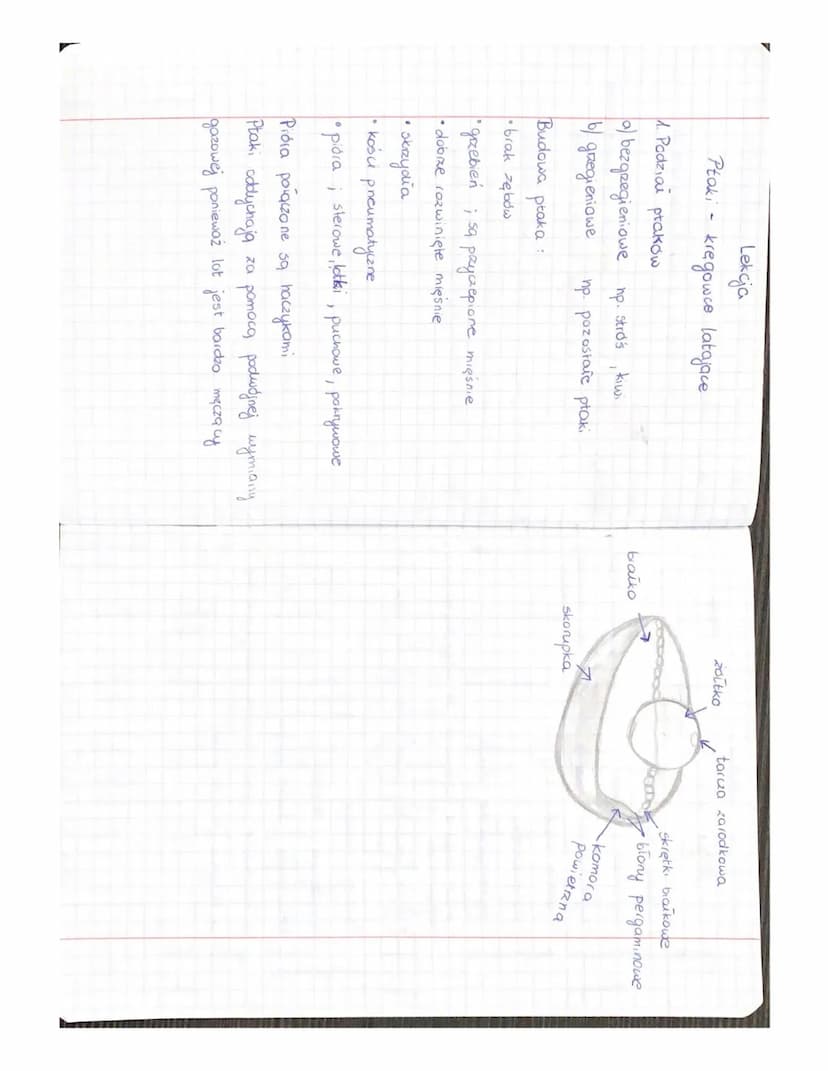 Lekcja
Ptaki - kręgowce latające
1. Podział ptaków
a) bezgrzegieniowe np. struś, kiwi
b) grzegieniowe np. pozostałe ptaki
Budowa ptaka :
• brak zębów
• grzebień ; są przyczepione mięśnie
• dobrze rozwinięte mięśnie
• skrzydła
• kości pneumatyczne
• pióra ; sterowe, lotki, puchowe, pokrywowe
Pióra połączone są haczykami
Ptaki oddychają za pomocą podwójnej wymiany
gazowej ponieważ lot jest bardzo męczący
żółtko
tarcza zarodkowa
białko
skrętki białkowe
błony pergaminowe
komora
powietrzna
skorupka